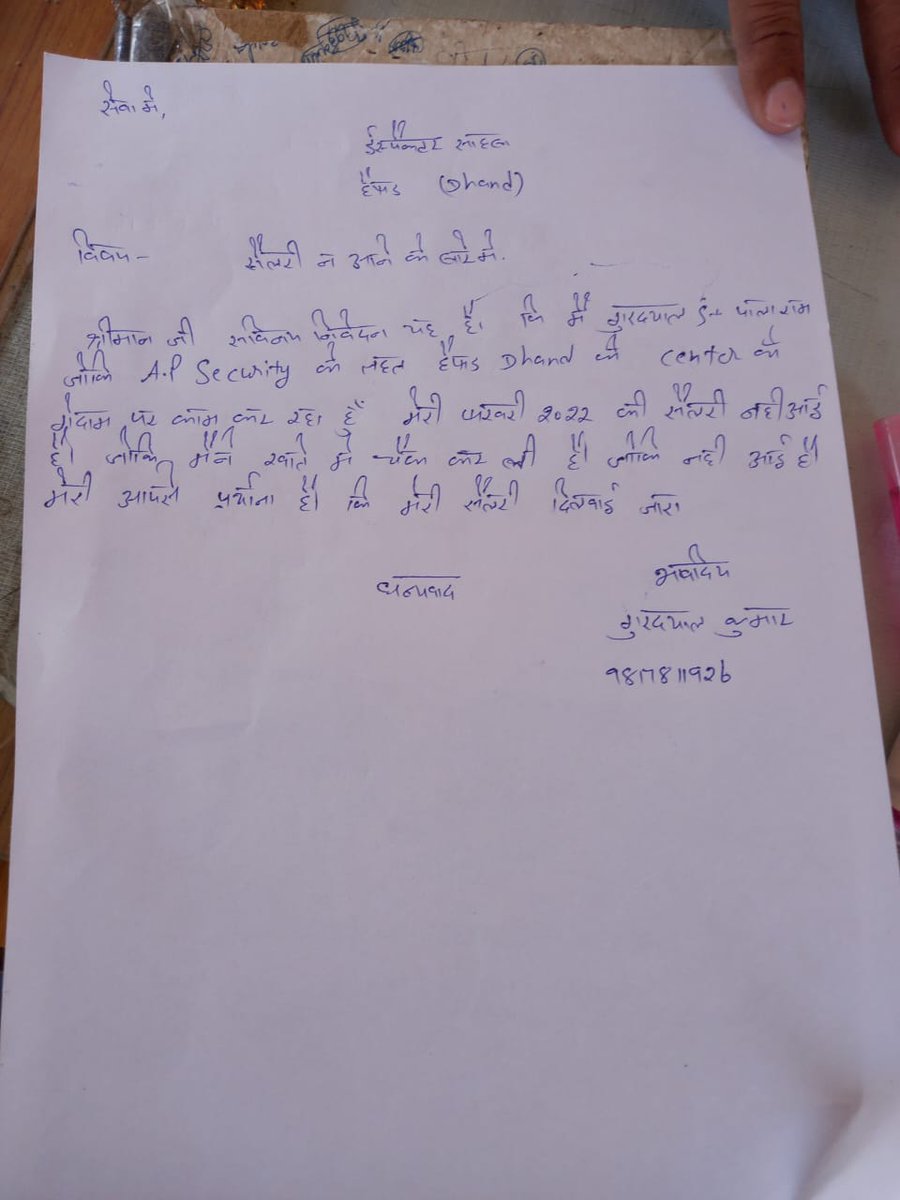 सेवा मे,
ईस्पैक्टर साहब
हैफड (Dhand)
विषय - सैलरी न आने के बारे मे.
श्रीमान जी सविनय निवेदन यह है। कि मैं गुरदयाल S/o पालाराम
जोकि A.P Security के तहत हैफड Dhand के center के
गोदाम पर काम कर रहा हूँ मेरी फरवरी २०२२ की सैलरी नही आई
है। जोकि मैंने खाते मे चैक कर ली है। जोकि नही आई है।
मेरी आपसे प्रर्थाना है। कि मेरी सैलरी दिलवाई जाए
धन्यवाद
भवदिय
गुरदयाल कुमार